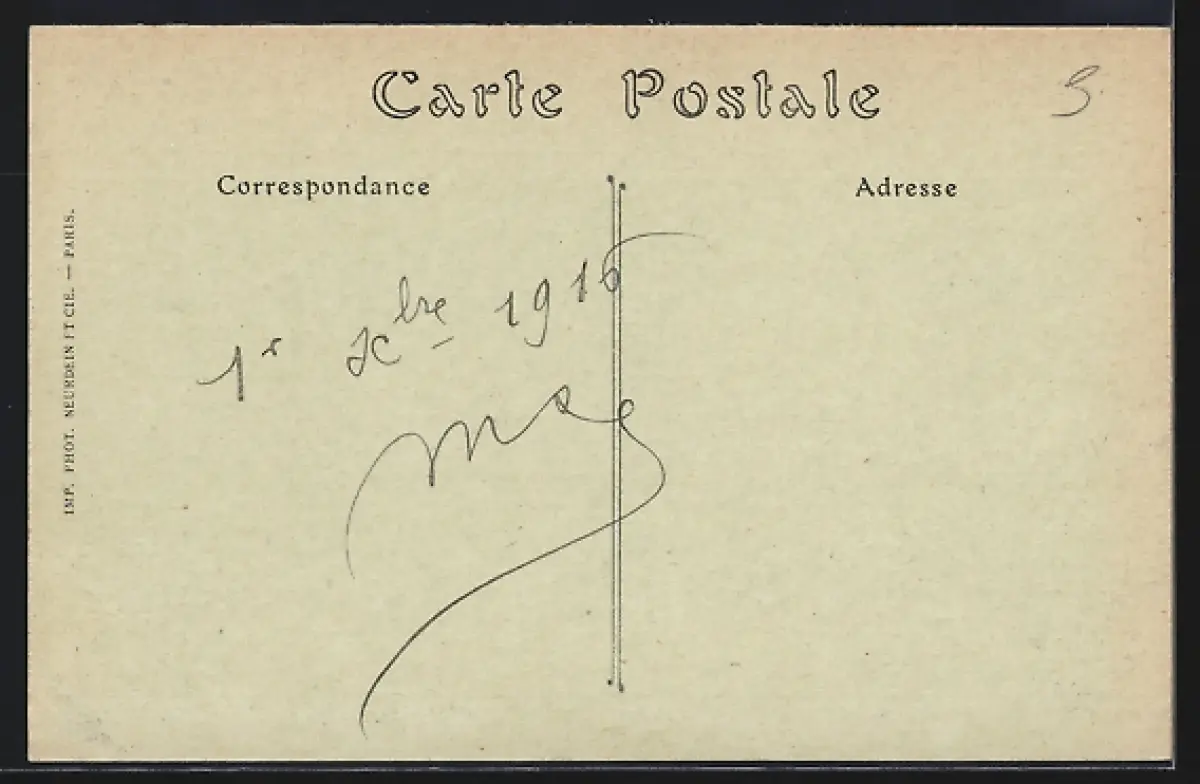 Carte Postale
Correspondance
Adresse
IMP. PHOT. NEURDEIN ET CIE. — PARIS.
1r Xbre 1916